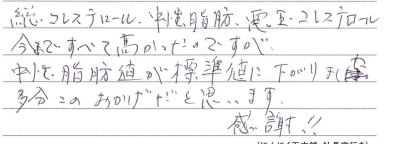 総コレステロール、中性脂肪、悪玉コレステロール
今まですべて高かったのですが
中性脂肪値が標準値に下がりました
多分このおかげだと思います。
感謝!!